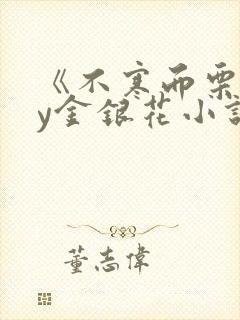 《不寒而栗
y金银花小説
董志偉